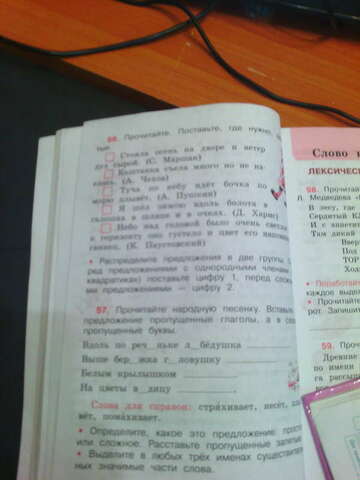 56. Прочитайте. Поставьте, где нужно,
тые.
Стояла осень на дворе и ветер
дул сырой. (С. Маршак)
Каштанка съела много но не на-
елась. (А. Чехов)
Туча по небу идёт бочка по
морю плывёт. (А. Пушкин)
Я шёл зимою вдоль болота в
галошах в шляпе и в очках. (Д. Хармс)
Небо над головой было очень светлое
к горизонту оно густело и цвет его
(К. Паустовский)
• Распределите предложения в две группы
ред предложениями с однородными членами
квадратиках) поставьте цифру 1, перед слож
ми предложениями — цифру 2.
57. Прочитайте народную песенку. Вставьте
предложение пропущенные глаголы, а в
пропущенные буквы.
Вдоль по реч_ньке л_бёдушка
Выше бер_жка г_ловушку
Белым крылышком
На цветы в_дицу
Слова для справок: стряхивает, несёт,
вёт, помахивает.
• Определите, какое это предложение: прос
или сложное. Расставьте пропущенные запятые
• Выделите в любых трёх именах существител
ных значимые части слова.
Слово
ЛЕКСИЧЕС
58. Прочита
Л. Медведева
В лесу, где
Сердитый
Там дикий
Ввер
Под
ТОР
Хол
• Поработай
каждое выде
• Прочитайте
рот. Запиши
59. Проч
Древние
по имени